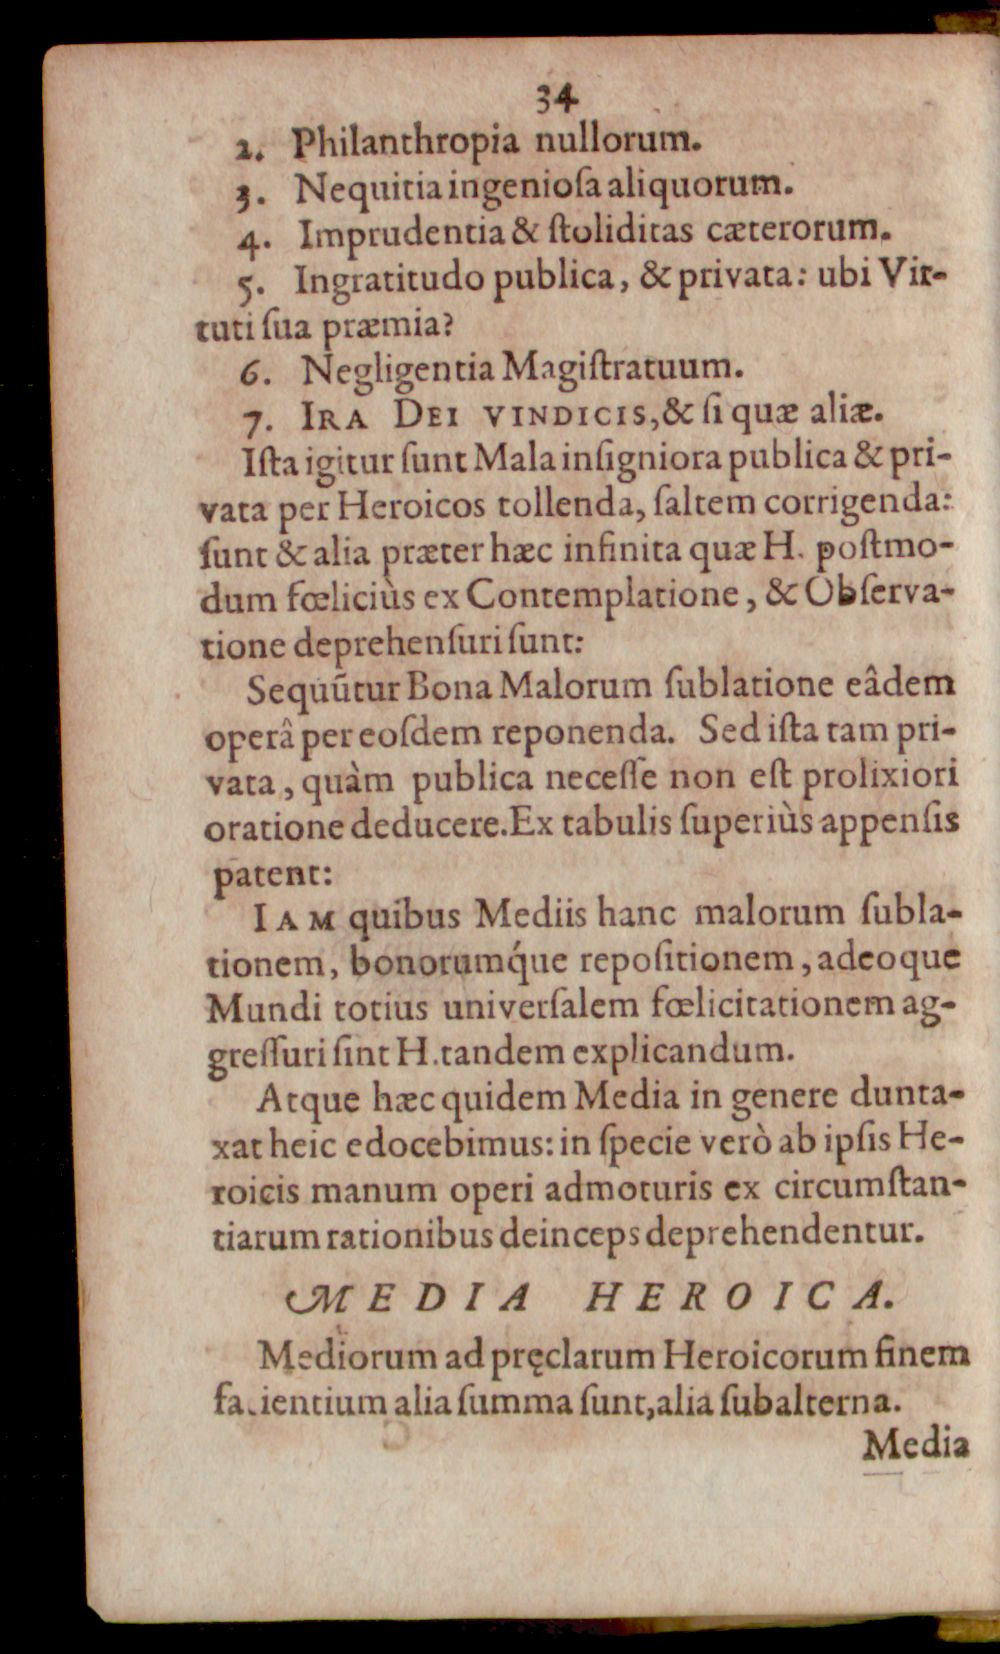 34
2. Philanthropia nullorum.
3. Nequitia ingenioſa aliquorum.
4. Imprudentia & ſtoliditas cæterorum.
5. Ingratitudo publica, & privata: ubi Vir-
tuti ſua præmia?
6. Negligentia Magiſtratuum.
7. IRA DEI VINDICIS, & ſi quæ aliæ.
Iſta igitur ſunt Mala inſigniora publica & pri-
vata per Heroicos tollenda, ſaltem corrigenda:
ſunt & alia præter hæc infinita quæ H. poſtmo-
dum fœliciùs ex Contemplatione, & Obſerva-
tione deprehenſuri ſunt:
Sequũtur Bona Malorum ſublatione eâdem
operâ per eoſdem reponenda. Sed iſta tam pri-
vata, quàm publica neceſſe non eſt prolixiori
oratione deducere. Ex tabulis ſuperiùs appenſis
patent:
IAM quibus Mediis hanc malorum ſubla-
tionem, bonorumq́ue repoſitionem, adeoque
Mundi totius univerſalem fœlicitationem ag-
greſſuri ſint H. tandem explicandum.
Atque hæc quidem Media in genere dunta-
xat heic edocebimus: in ſpecie verò ab ipſis He-
roicis manum operi admoturis ex circumſtan-
tiarum rationibus deinceps deprehendentur.
MEDIA HEROICA.
Mediorum ad pręclarum Heroicorum finem
facientium alia ſumma ſunt, alia ſubalterna.
Media